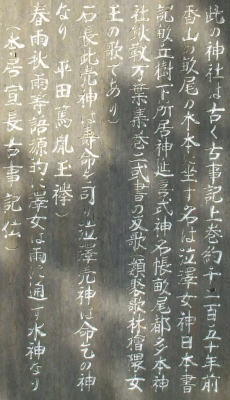 此の神社は古く古事記上巻約千二百五十年前
香山の畝尾の木本に坐す名は泣澤女神日本書
記畝丘樹下所居神延喜式神名帳畝尾都多本神
社鈌敬万葉集巻二或書の反歌類聚歌林檜隈女
王の歌であり
石長比売神は寿命を司り泣澤売神は命乞の神
なり 平田篤胤玉襷
春雨秋雨等語源的に澤女は雨に通ず水神なり
(本居宣長古事記伝)